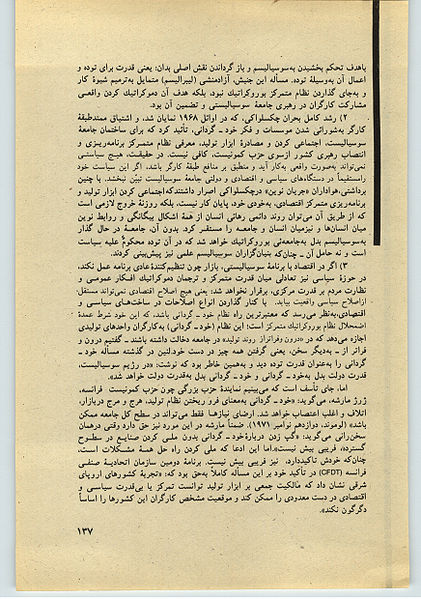 باهدف تحکم بخشیدن به‌سوسیالیسم و باز گرداندن نقش اصلی بدان؛ یعنی قدرت برای توده و
اعمال آن به‌وسیلهٔ توده. مسأله این جنبش، آزادمنشی (لیبرالیسم) متمایل به‌ترمیم شیوهٔ کار
و به‌جای گذاردن نظام متمرکز بوروکراتیک نبود، بلکه هدف آن دموکراتیک کردن واقعی
مشارکت کارگران در رهبری جامعهٔ سوسیالیستی و تضمین آن بود.
۲) رشد کامل بحران چکسلواکی، که در اوائل ۱۹۶۸ نمایان شد، و اشتیاق ممتد طبقهٔ
کارگر به‌شورائی شدن موسسات و فکر خود ـ گردانی، تأئید کرد که برای ساختمان جامعهٔ
سوسیالیست، اجتماعی کردن و مصادرهٔ ابزار تولید، معرفی نظام متمرکز برنامه‌ریزی و
انتصاب رهبری کشور ازسوی حزب کمونیست، کافی نیست. در حقیقت، هیچ سیاستی
نمی‌تواند به‌صورت واقعی به‌کار آید و منطبق بر منافع طبقهٔ کارگر باشد، اگر این سیاست خود
را مستقیماً در دستگاه‌های سیاسی و اقتصادی و دولتی جامعهٔ سوسیالیست تبیّن نبخشد. با چنین
برداشتی، هواداران «جریان نوین» درچکسلواکی اصرار داشتند که اجتماعی کردن ابزار تولید و
برنامه‌ریزی متمرکز اقتصادی، به‌خودی خود، پایان کار نیست، بلکه روزنهٔ خروج لازمی است
که از طریق آن می‌توان روند دائمی رهائی انسان از همهٔ اشکال بیگانگی و روابط نوین
میان انسان‌ها و نیز میان انسان و جامعه را مستقر کرد. بدون آن، جامعهٔ در حال گذار
به‌سوسیالیسم بدل به‌جامعه‌ئی بوروکراتیک خواهد شد که در آن توده محکوم علیه سیاست
است و نه حامل آن ـ چنان‌که بنیان‌گزاران سوسیالیسم علمی نیز پیش‌بینی کردند.
۳) اگر در اقتصاد با برنامهٔ سوسیالیستی، بازار چون تنظیم‌کنندهٔ عادی برنامه عمل نکند،
در حوزهٔ سیاسی نیز تعادلی میان قدرت متمرکز و ترجمان دموکراتیک افکار عمومی و
نظارت مردم بر قدرت مرکزی، برقرار نخواهد شد؛ یعنی هیچ اصلاح اقتصادی نمی‌تواند مستقل
ازاصلاح سیاسی واقعیت بیابد. با کنار گذاردن انواع اصلاحات در ساخت‌های سیاسی و
اقتصادی، به‌نظر می‌رسد که معتبرترین راه نظام خود ـ گردانی باشد، که این خود شرط عمدهٔ
اضمحلال نظام بوروکراتیک متمرکز است؛ این نظام (خود ـ گردانی) به‌کارگران واحدهای تولیدی
اجازه می‌دهد که در «درون وفرانراز روند تولید» در جامعه دخالت داشته باشند ـ گفتیم درون و
فراتر از ـ به‌دیگر سخن، یعنی گرفتن همه چیز در دست خود. لنین در گذشته مسأله خود ـ
گردانی را به‌عنوان قدرت توده دید و به‌همین خاطر بود که نوشت: «در رژیم سوسیالیست،
قدرت دولت بدل به‌خود ـ گردانی و خود ـ گردانی بدل به‌قدرت دولت خواهد شد».
اما، جای تأسف است که می‌بینیم نمایندهٔ حزب بزرگی چون حزب کمونیست فرانسه،
ژرژ مارشه، می‌گوید: «خود ـ گردانی به‌معنای فرو ریختن نظام تولید، هرج و مرج دربازار،
اتلاف و اغلب اعتصاب خواهد شد. ارضای نیازها فقط می‌تواند در سطح کل جامعه ممکن
باشد» (لوموند، دوازدهم نوامبر ۱۹۷۱). ضمناً مارشه در این مورد نیز حق دارد وقتی درهمان
سخن‌رانی می‌گوید: «گپ زدن دربارهٔ خود ـ گردانی بدون ملی کردن صنایع در سطوح
گسترده، فریبی بیش نیست». اما این ادعا که ملی کردن راه حل همهٔ مشکلات است،
چنان‌که خودش تاکیددارد، نیز فریبی بیش نیست. برنامهٔ دومین سازمان اتحادیهٔ صنفی
فرانسه (CFDT) در تأکید خود بر این مسأله کاملاً به‌حق بود که: «تجربهٔ کشورهای اروپای
شرقی نشان داد که مالکیت جمعی بر ابزار تولید توانست تمرکز یا بی‌قدرت سیاسی و
اقتصادی در دست معدودی را ممکن کند و موقعیت مشخص کارگران این کشورها را اساساً
دگرگون نکند».
۱۳۷